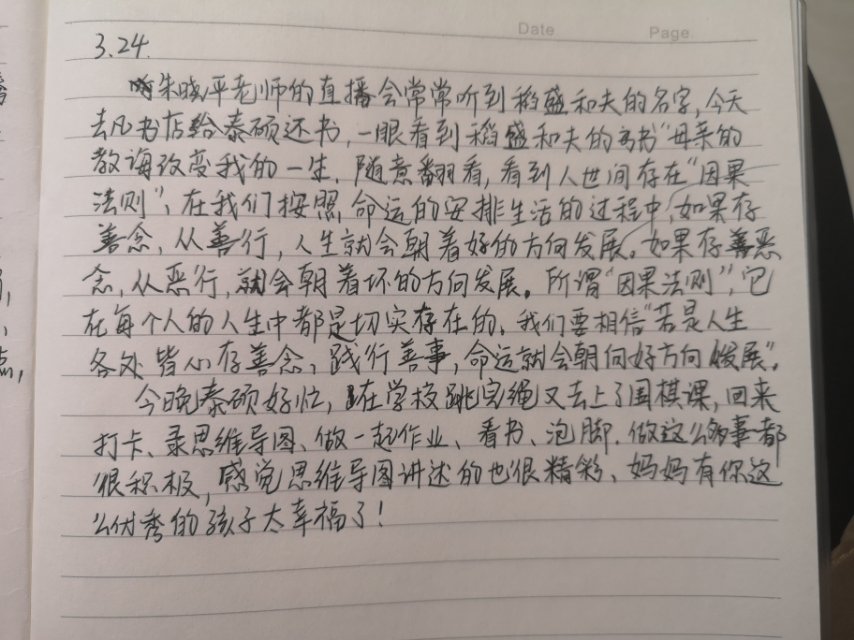 Date
Page
3.24.
听朱晓平老师的直播会常常听到稻盛和夫的名字,今天
去凡书店给泰硕还书,一眼看到稻盛和夫的书"母亲的
教诲改变我的一生.随意翻看,看到人世间存在"因果
法则",在我们按照命运的安排生活的过程中,如果存
善念,从善行,人生就会朝着好的方向发展。如果存恶
念,从恶行,就会朝着坏的方向发展。所谓"因果法则",它
在每个人的人生中都是切实存在的.我们要相信"若是人生
各处皆心存善念,践行善事,命运就会朝向好方向发展"。
今晚泰硕好忙,在学校跳完绳又去上了围棋课,回来
打卡、录思维导图、做一起作业、看书、泡脚.做这么多事都
很积极,感觉思维导图讲述的也很精彩、妈妈有你这
么优秀的孩子太幸福了!
点,